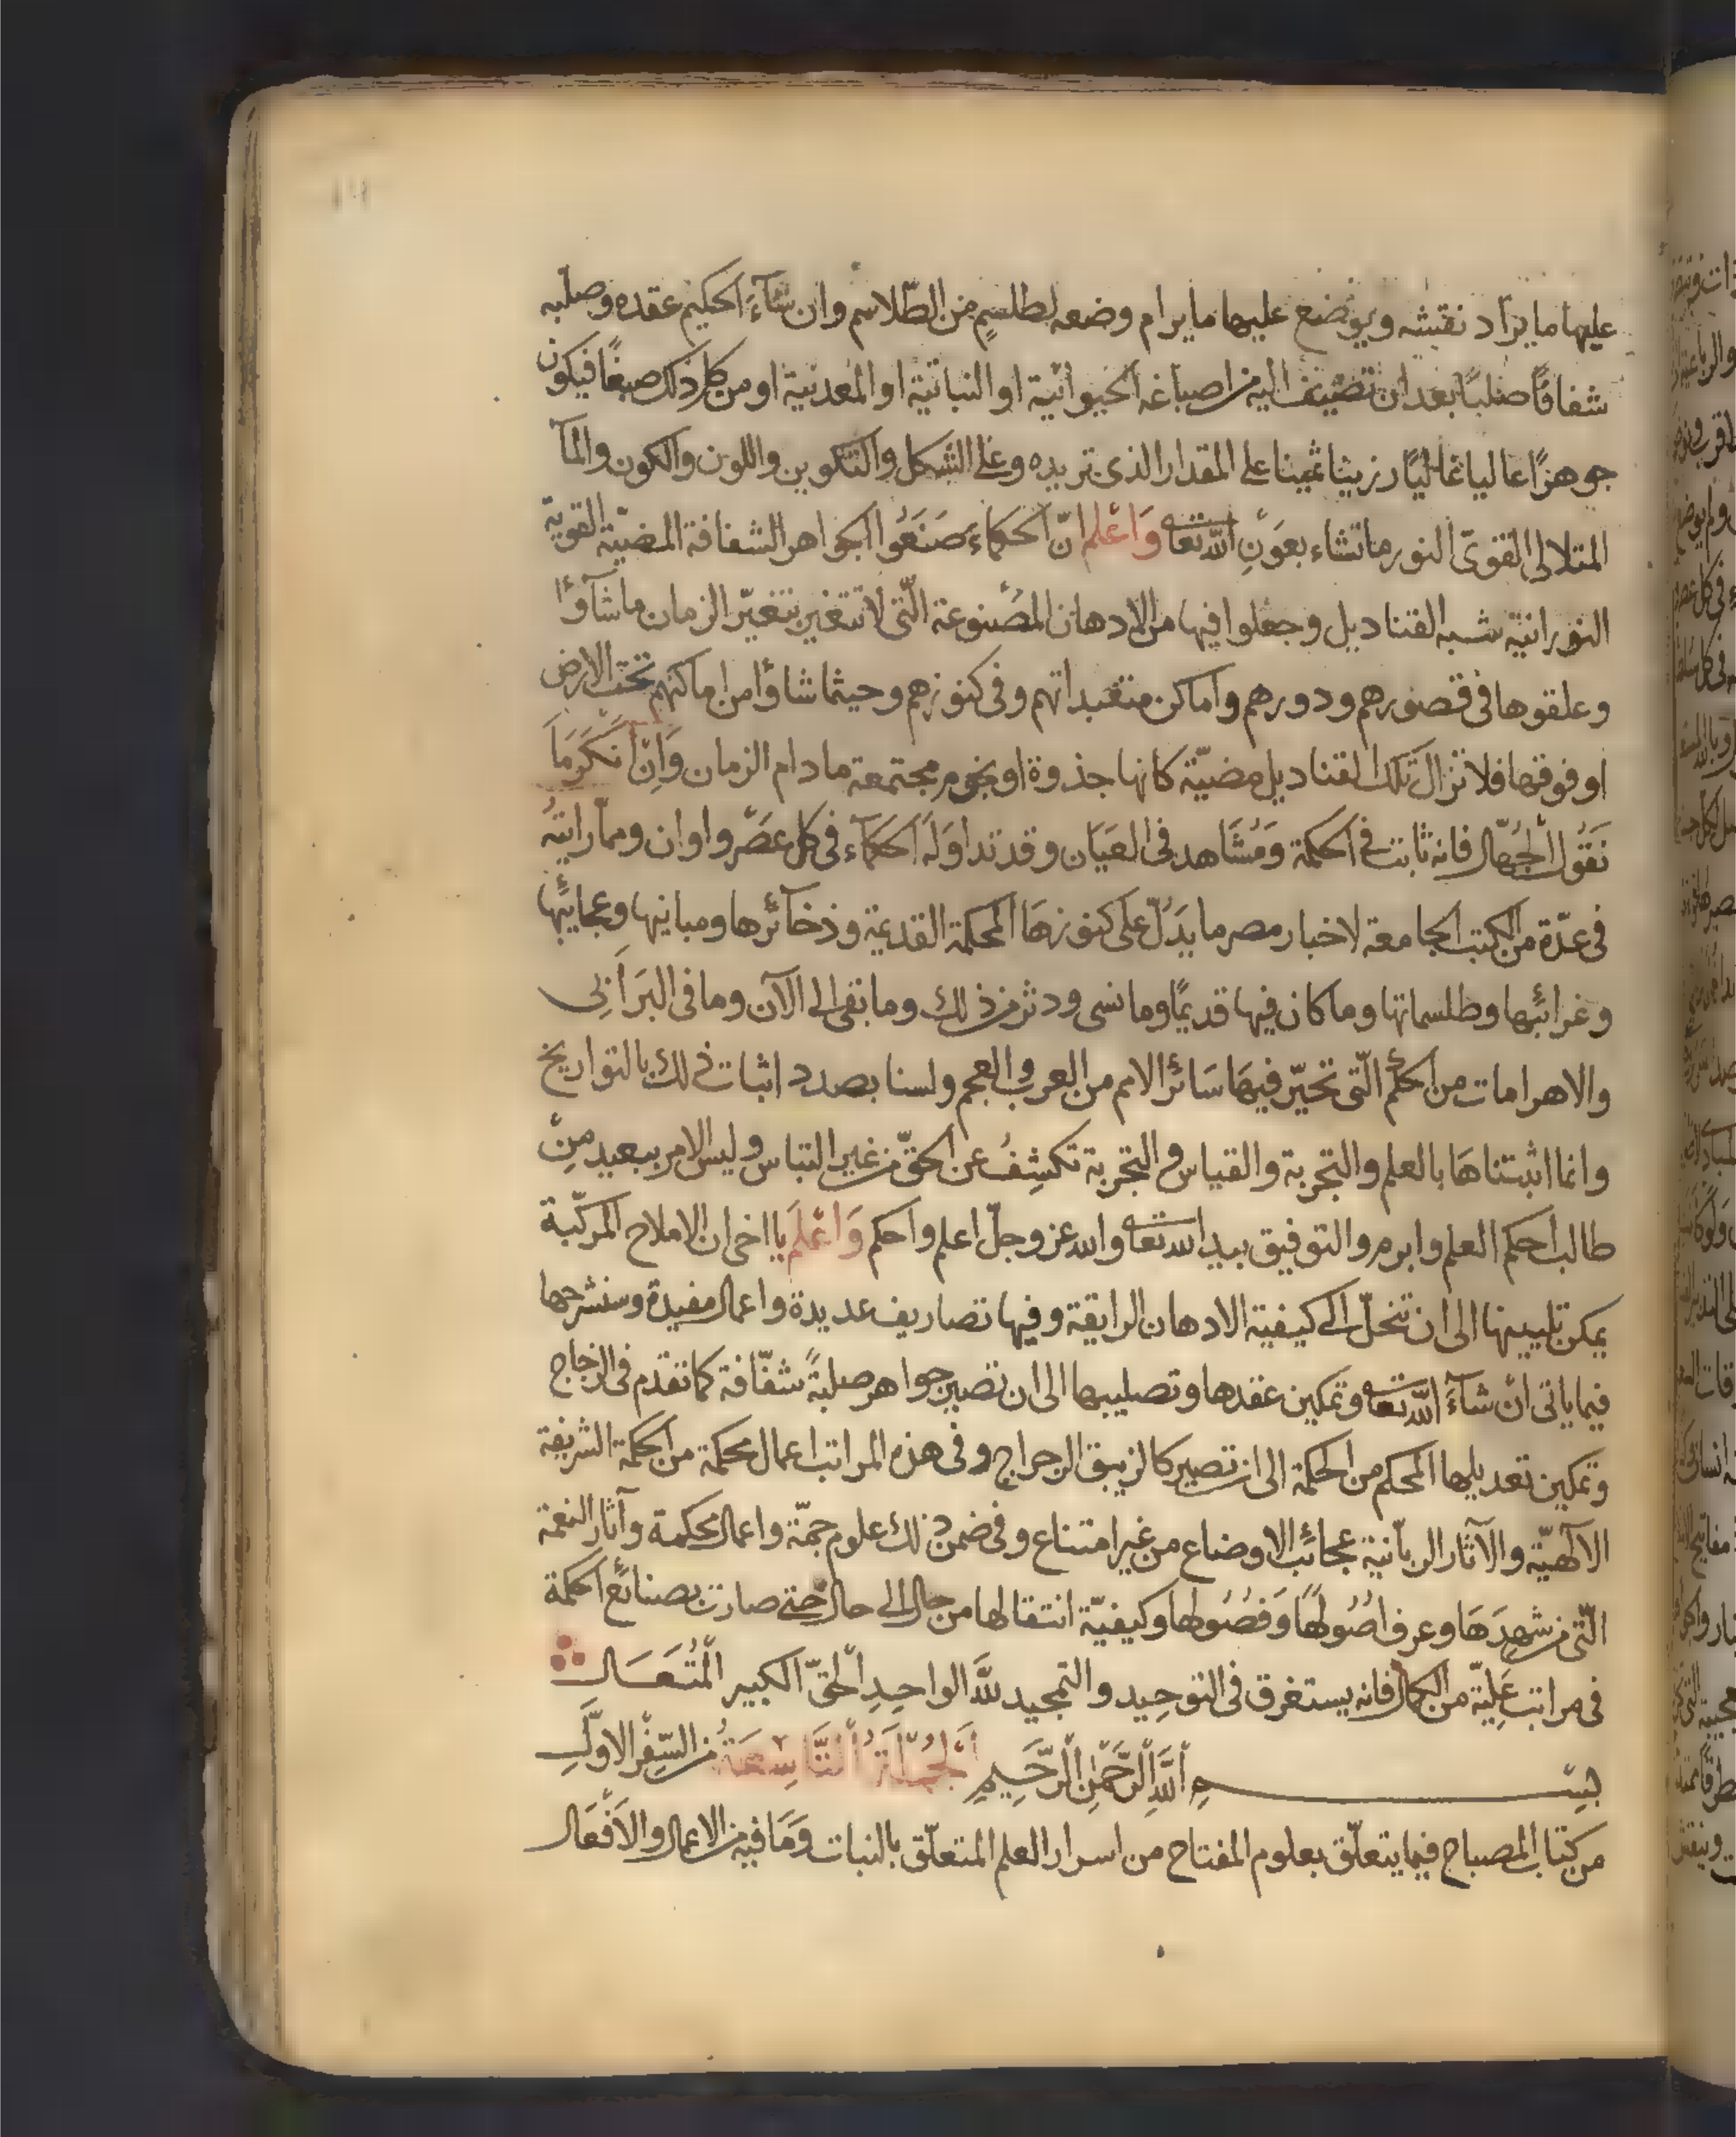 عليها ما يراد نقشه ويوضع عليها ما يرام وضعه لطلسمٍ من الطّلاسم وان شآءَ الحكيم عقده وصلبه
شفافًا صلبًا بعد ان تضيف اليه من اصباغه الحيوانية او النباتية او المعدنية او من كل ذلك صبغًا فيكون
جوهرًا عاليا غاليًا رزينا ثمينا على المقدار الذى تريده وعلى الشكل والتكوين واللون والكون والمآ
المتلالى القوىّ النور ما تشاء بعَونِ اللّه تعا وَاعْلم انّ الحكماءَ صَنَعُوا الجواهر الشفافة المضيّة القوية
النورانية شبه القناديل وجعلوا فيها من الادهان المصنوعة الّتى لا تتغير بتغيّر الزمان ما شآوٴا
وعلقوها فى قصورهم ودورهم واماكن متعبداتهم وفى كنوزهم وحيثما شاؤا من اماكنهم تحت الارض
او فوقها فلا تزال تلك القناديل مضيّة كانها جذوة او نجوم مجتمعة ما دام الزمان وَاِن انكَرَ مَا
نَقُول الجُهّال فانه ثابت فى الحكمة وَمُشَاهد فى العَيَان وقد تداوَلَهَ الحكمآء فى كل عصَر واوان ومما رايتهُ
فى عدّة من الكتب الجامعة لاخبار مصر ما يدَلّ على كنوزهَا المحكمة القديمة وذخآئرها ومبانيها وعجايبُها
وغرائبُها وطلسماتها وما كان فيها قديمًا وما نسى ودثر من ذلك وما بقى الى الآن وما فى البَرَابى
والاهرامات من الحكم الّتى تحيّر فيهَا سَائر الامم من العرب والعجم ولسنا بصدد اثبات ذلك بالتواريخ
وانما اثبتناهَا بالعلم والتجربة والقياس والتجربة تكشِفُ عن الحقّ من غير التباس وليس الامر ببعيد مِن
طالب احكم العلم وابرم والتوفيق بيد الله تعا والله عز وجلّ اعلم واحكم وَاعْلَم يا اخى ان الاملاح المركّبة
يمكن تليينها الى ان تنحلّ الى كيفية الادهان الرايقة وفيها تصاريف عديدة واعمال مفيدة وسنشرحها
فيما ياتى ان شآءَ اللّه تعا وتمكين عقدها وتصليبها الى ان تصير جواهر صلبةً شفّافة كما تقدم فى الزجاج
وتمكين تعديلها المحكم من الحكمة الى ان تصير كالزيبق الرجراج وفى هذه المراتب اعمال محكمة من الحكمة الشريفة
الآلهيّة والآثار الربّانية عجائب الاوضاع من غير امتناع وفى ضمن ذلك علوم جمّة واعمال محكمة وآثار النعمة
الّتى من شهدَهَا وعرف اصُولهَا وَفصُولها وكيفيّة انتقالها من حال الى حال حتى صارت بصنائع الحكمة
فى مراتب عَلِيّة من الكمال فانه يستغرق فى التوحِيد والتمجيد للَّه الواحِدِ الحَقّ الكبير المُتعَال
بسم اللَّهِ الرَّحْمٰنِ الرَّحَيمِ اَلجُملَةُ التَّاسِعَةُ من السِّفْر الاوّلِ
من كتاب المصباح فيما يتعلّق بعلوم المفتاح من اسرار العلم المتعلّق بالنبات وَمَا فيه من الاعمال والاَفْعَال